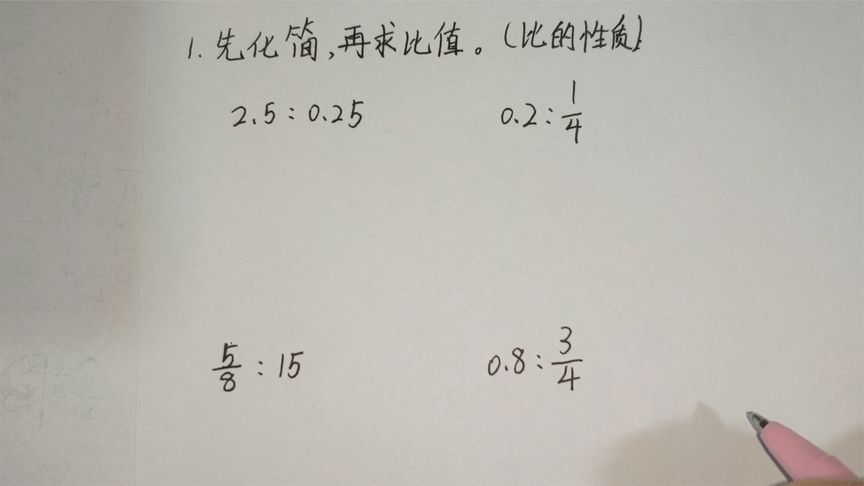 1. 先化简,再求比值。(比的性质)
2.5:0.25 0.2:1/4
5/8:15 0.8:3/4